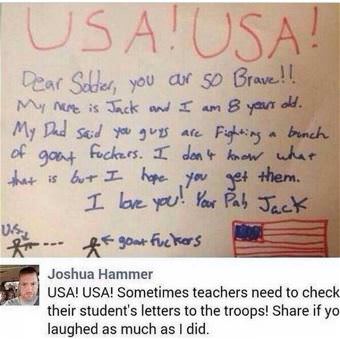 USA! USA!
Dear Solder, you our so Brave!!
My name is Jack and I am 8 years old.
My Dad said you guys are Fighting a bunch
of goat fuckers. I don't know what
that is but I hope you get them.
I love you! Your Pal, Jack
U.S.
goat fuckers
Joshua Hammer
USA! USA! Sometimes teachers need to check
their student's letters to the troops! Share if yo
laughed as much as I did.